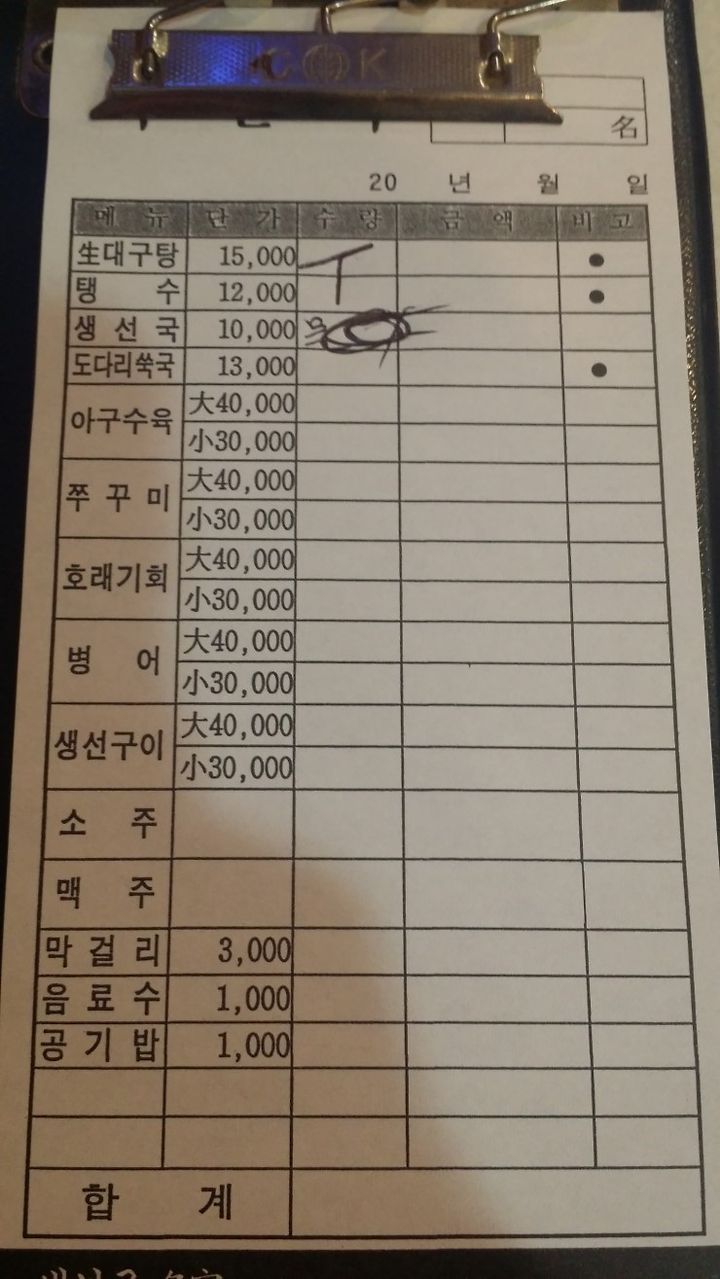 COK
名
20 년 월 일
메 뉴 단 가 수 량 금 액 비 고
生대구탕 15,000 ●
탱 수 12,000 ●
생 선 국 10,000
도다리쑥국 13,000 ●
아구수육 大40,000
小30,000
쭈 꾸 미 大40,000
小30,000
호래기회 大40,000
小30,000
병 어 大40,000
小30,000
생선구이 大40,000
小30,000
소 주
맥 주
막 걸 리 3,000
음 료 수 1,000
공 기 밥 1,000
합 계